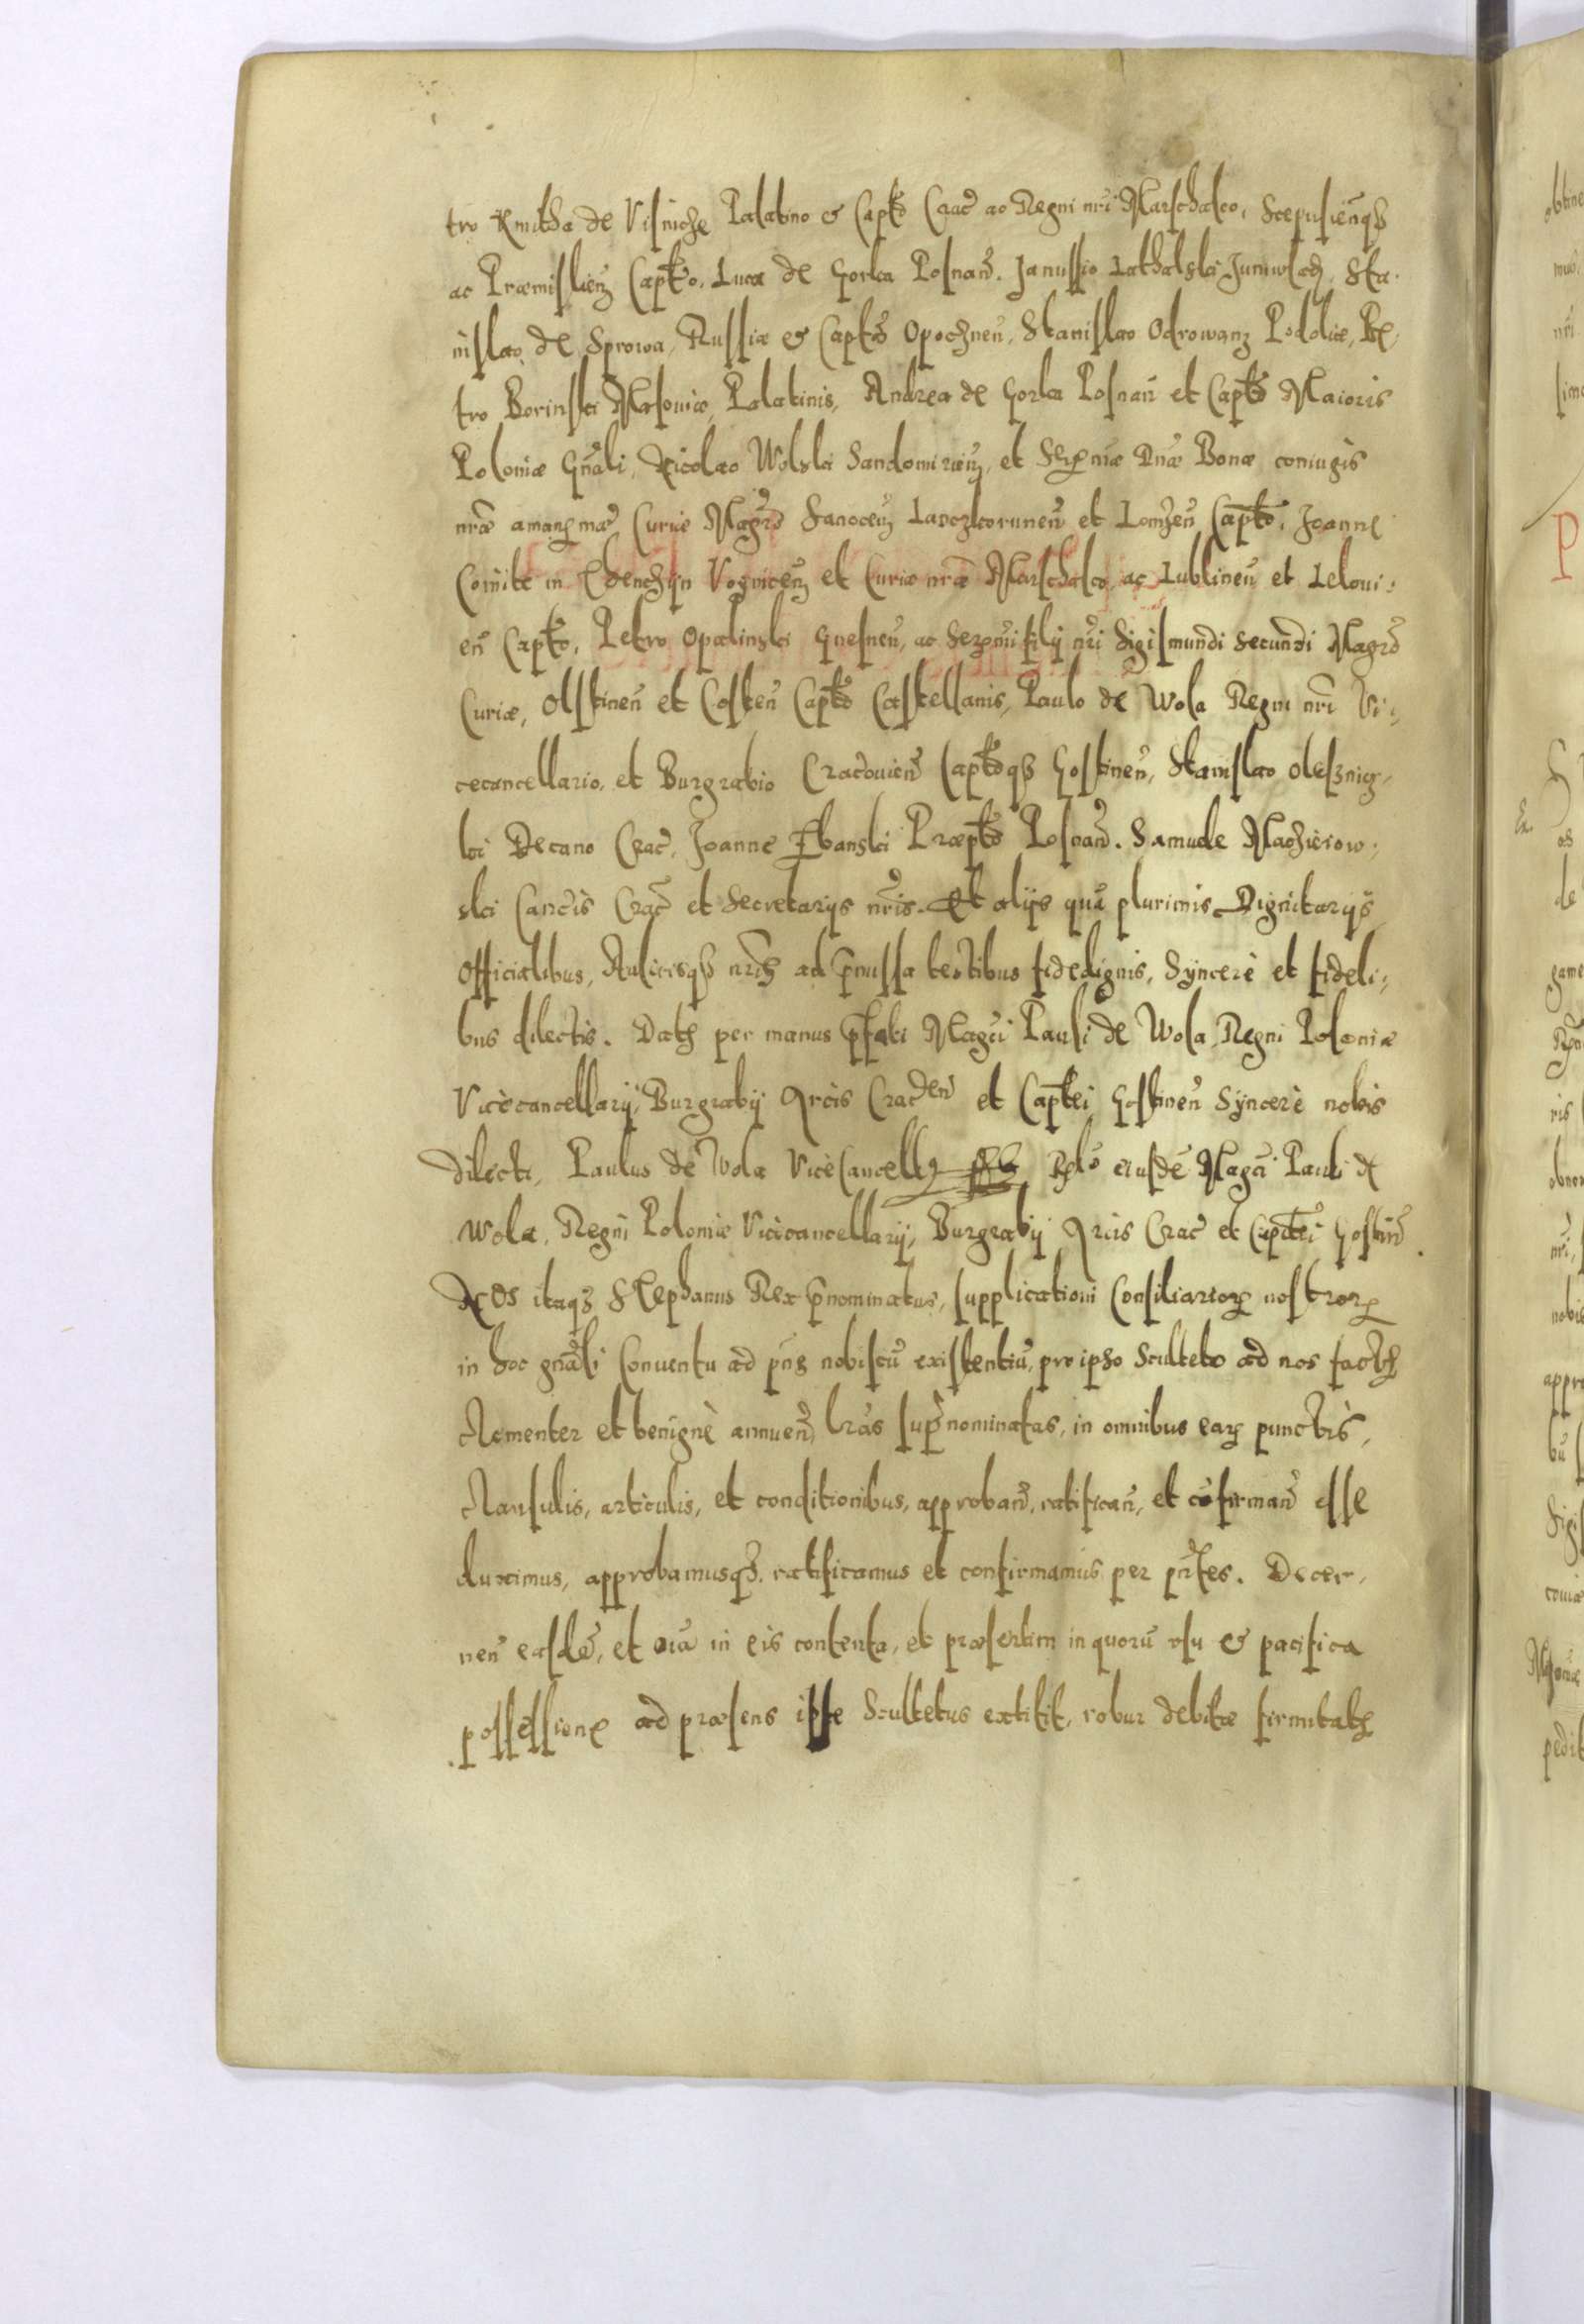 tro Kmitha de Visnicze Palatino & Captō Crac̄ ac Regni nr̄i Marschalco, Scepusieñqȝ
ac Præmislieñ Captō, Luca de Gorka Posnañ. Janussio Lathalski Juniwladȝ, Sta-
nislao de Sprowa, Russiæ & Captō Opoczneñ, Stanislao Odrowanz Podoliæ, Pe-
tro Gorinski Masoviæ, Palatinis, Andrea de Gorka Posnañ et Captō Maioris
Poloniæ Gn̄ali, Nicolao Wolski Sandomirieñ, et Serenmæ Dnæ Bonæ coniugis
nræ amanmæ Curiæ Magrō Sanoceñ Lanczkoruneñ et Lomzeñ Captō, Joanne
Comite in Thenczijn Voyniceñ et Curiæ nræ Marschalco, ac Lublineñ et Lelovi-
eñ Captō, Petro Opalinski Gnesneñ, ac Serenmi filij nr̄i Sigismundi Secundi Magrō
Curiæ, Olstineñ et Costeñ Captō Castellanis, Paulo de Wola Regni nr̄i Vi-
cecancellario, et Burgrabio Cracovieñ Captōqȝ Gostineñ, Stanislao Olesznicz-
ki Decano Crac̄, Joanne Érbanski Præptō Posnañ. Samuele Maczieiow-
ski Cancīs Crac̄ et Secretarijs nr̄is. Et alijs quā plurimis Dignitarijs
Officialibus, Aulicisqȝ nr̄is ad p̄missa testibus fidedignis, Syncerè et fideli-
bus dilectis. Datȝ per manus p̄fati Magci Pauli de Wola, Regni Poloniæ
Vicecancellarij, Burgrabij Arcis Cracoeñ et Captei Gostineñ Syncerè nobis
dilecti, Paulus de Wola ViceCancellꝰ sst. Rlō eiusdē Magci Pauli de
Wola, Regni Poloniæ Vicicancellarij, Burgrabij Arcis Crac̄ et Captei Gostiñ.
Nos itaqȝ Stephanus Rex p̄nominatus, supplicationi Consiliarioꝝ nostroꝝ
in hoc gn̄ali Conventu ad p̄ns nobiscū existentiū, pro ipso Sculteto ad nos factȝ
clementer et benignè annueñ, lr̄as sup̄nominatas, in omnibus eaꝝ punctis,
clausulis, articulis, et conditionibus, approbañ, ratificañ, et cōfirmañ esse
duximus, approbamusqȝ, ratificamus et confirmamus per p̄ntes. Decer-
neñ easdē, et oīa in eis contenta, et præsertim in quorū usu & pacifica
possessione ad præsens ipse Scultetus extitit, robur debitæ firmitatȝ